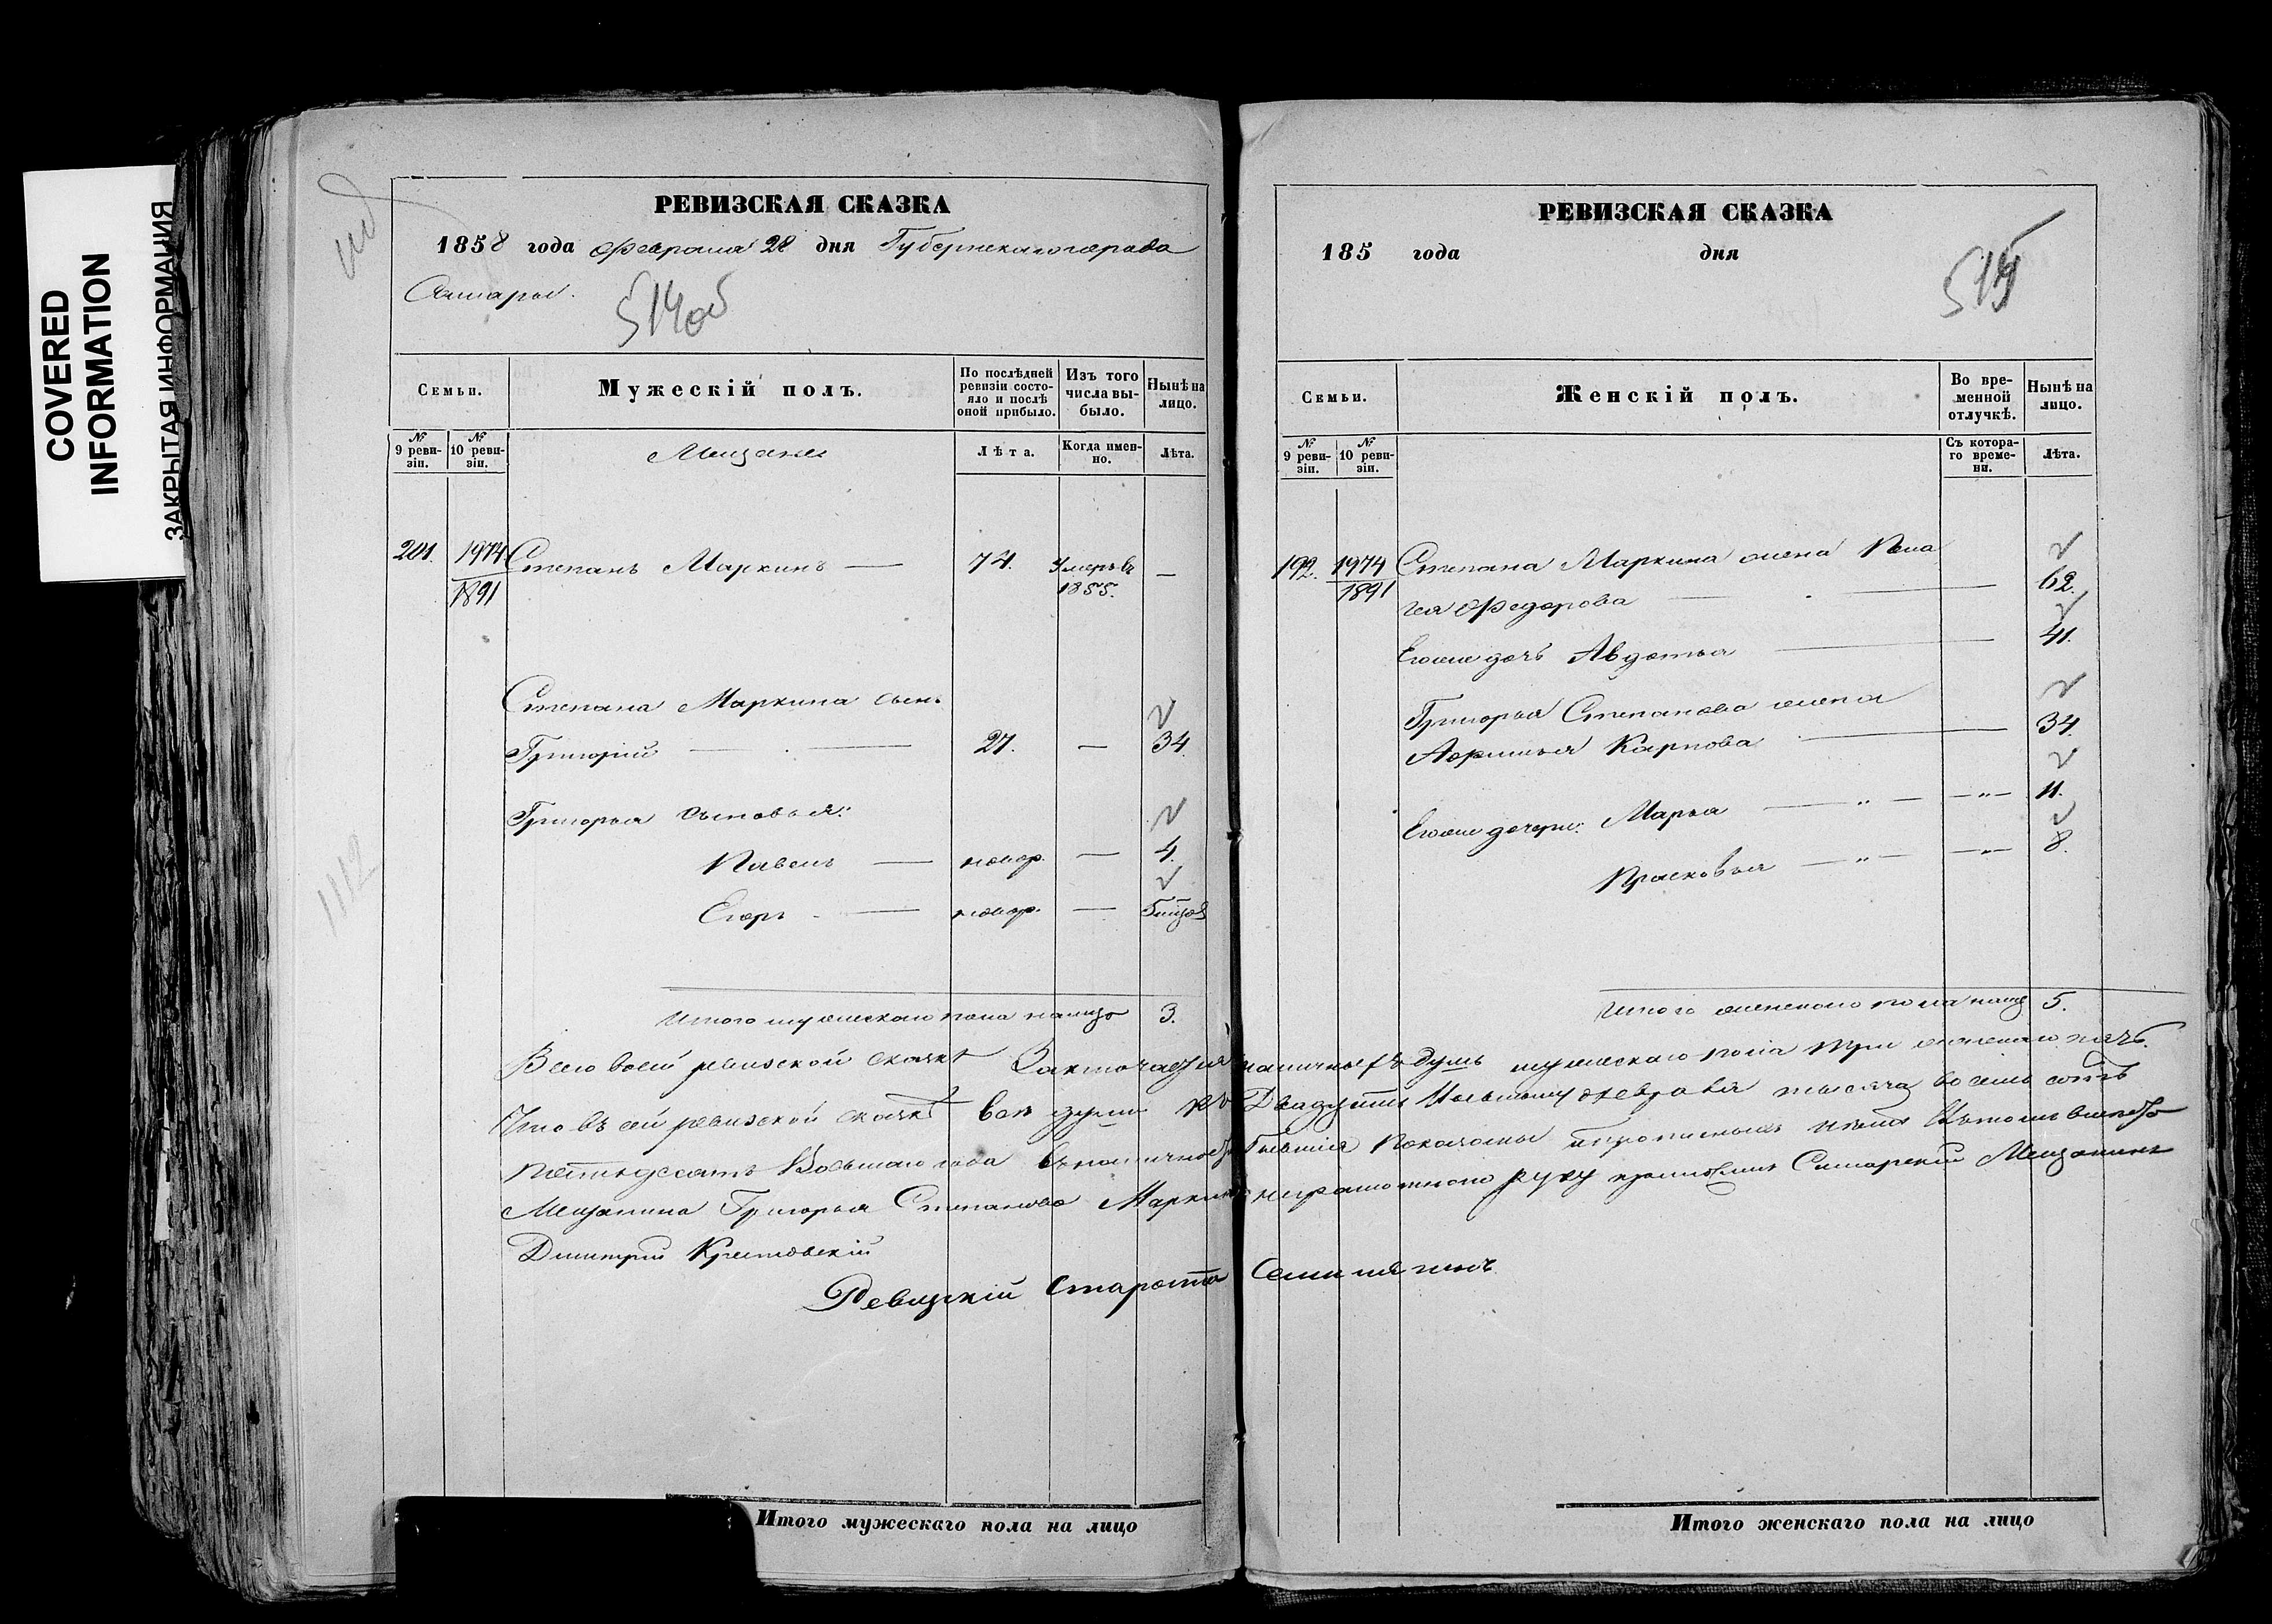 COVERED
INFORMATION
ЗАКРЫТАЯ ИНФОРМАЦИЯ
РЕВИЗСКАЯ СКАЗКА
1858 года Февраля 28 дня Губернскаго города
Самары.
514об
Семьи.
Мужескій полъ.
По послѣдней ревизіи состояло и послѣ оной прибыло.
Изъ того числа выбыло.
Нынѣ на лицо.
№ 9 ревизіи.
№ 10 ревизіи.
Мещане
Лѣта.
Когда именно.
Лѣта.
201. 1974 Степанъ Маркинъ — 74. Умеръ въ —
1891 1855.
Степана Маркина сынъ
Григорій — 27. — 34.
Григорья сыновья:
Павелъ — новор. — 4.
Егоръ — новор. —
Итого мужескаго пола налицо 3.
1112
РЕВИЗСКАЯ СКАЗКА
185 года дня
515
Семьи.
Женскій полъ.
Во временной отлучкѣ.
Нынѣ на лицо.
№ 9 ревизіи.
№ 10 ревизіи.
Съ котораго времени.
Лѣта.
192. 1974 Степана Маркина жена Пела
1891 гея Федорова — 62.
Егоже дочь Авдотья — 41.
Григорья Степанова жена
Аксинья Карпова — 34.
Егоже дочери: Марья — „ — — „ — 11.
Прасковья — „ — — „ — 8.
Итого женскаго пола налицо 5.
Всего въ сей ревизской сказкѣ Заключается наличныхъ душъ мужескаго пола три женскаго пять.
Что въ сей ревизской сказкѣ всѣ души по Двадцать Осьмому Февраля тысяча восемь сотъ
Пятьдесятъ Восьмаго года въ наличности бывшія Показаны
Мещанина Григорья Степанова Маркина неграмотнаго руку приложилъ Самарскій Мещанинъ
Дмитрій Крестовскій
Ревизскій Староста
Итого мужескаго пола на лицо
Итого женскаго пола на лицо